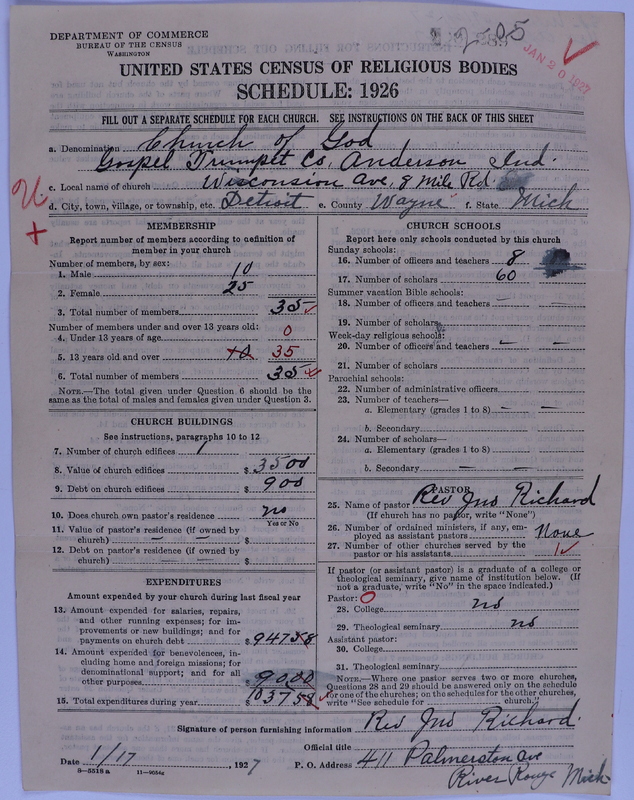 DEPARTMENT OF COMMERCE
BUREAU OF THE CENSUS
WASHINGTON
JAN 20 1927
UNITED STATES CENSUS OF RELIGIOUS BODIES
SCHEDULE: 1926
FILL OUT A SEPARATE SCHEDULE FOR EACH CHURCH. SEE INSTRUCTIONS ON THE BACK OF THIS SHEET
a. Denomination Church of God
Gospel Trumpet Co, Anderson Ind.
c. Local name of church Wisconsion Ave, 8 Mile Rd
d. City, town, village, or township, etc. Detroit e. County Wayne f. State Mich
MEMBERSHIP
Report number of members according to definition of
member in your church
Number of members, by sex:
1. Male 10
2. Female 25
3. Total number of members 35
Number of members under and over 13 years old:
4. Under 13 years of age 0
5. 13 years old and over 35
6. Total number of members 35
NOTE.—The total given under Question 6 should be
same as the total of males and females given under Question 3.
CHURCH BUILDINGS
See instructions, paragraphs 10 to 12
7. Number of church edifices 1
8. Value of church edifices $ 3500
9. Debt on church edifices $ 900
10. Does church own pastor's residence no
Yes or No
11. Value of pastor's residence (if owned by
church) — — $
12. Debt on pastor's residence (if owned by
church) — — $
EXPENDITURES
Amount expended by your church during last fiscal year
13. Amount expended for salaries, repairs,
and other running expenses; for im-
provements or new buildings; and for
payments on church debt $ 94758
14. Amount expended for benevolences, in-
cluding home and foreign missions; for
denominational support; and for all
other purposes 9000
15. Total expenditures during year $ 103758
CHURCH SCHOOLS
Report here only schools conducted by this church
Sunday schools:
16. Number of officers and teachers 8
17. Number of scholars 60
Summer vacation Bible schools:
18. Number of officers and teachers —
19. Number of scholars
Week-day religious schools:
20. Number of officers and teachers — —
21. Number of scholars
Parochial schools:
22. Number of administrative officers
23. Number of teachers—
a. Elementary (grades 1 to 8) — —
b. Secondary
24. Number of scholars—
a. Elementary (grades 1 to 8)
b. Secondary — —
PASTOR
25. Name of pastor Rev Jno Richard
(If church has no pastor, write "None")
26. Number of ordained ministers, if any, em-
ployed as assistant pastors None
27. Number of other churches served by the
pastor or his assistants 1
If pastor (or assistant pastor) is a graduate of a college or
theological seminary, give name of institution below. (If
not a graduate, write "No" in the space indicated.)
Pastor: 0
28. College no
29. Theological seminary no
Assistant pastor:
30. College
31. Theological seminary
NOTE.—Where one pastor serves two or more churches,
Questions 28 and 29 should be answered only on the schedule
for one of the churches; on the schedules for the other churches,
write "See schedule for church."
Signature of person furnishing information Rev Jno Richard.
Official title
Date 1/17, 1927 P. O. Address 411 Palmerston ave
River Rouge Mich
8-5518 a 11-9054c